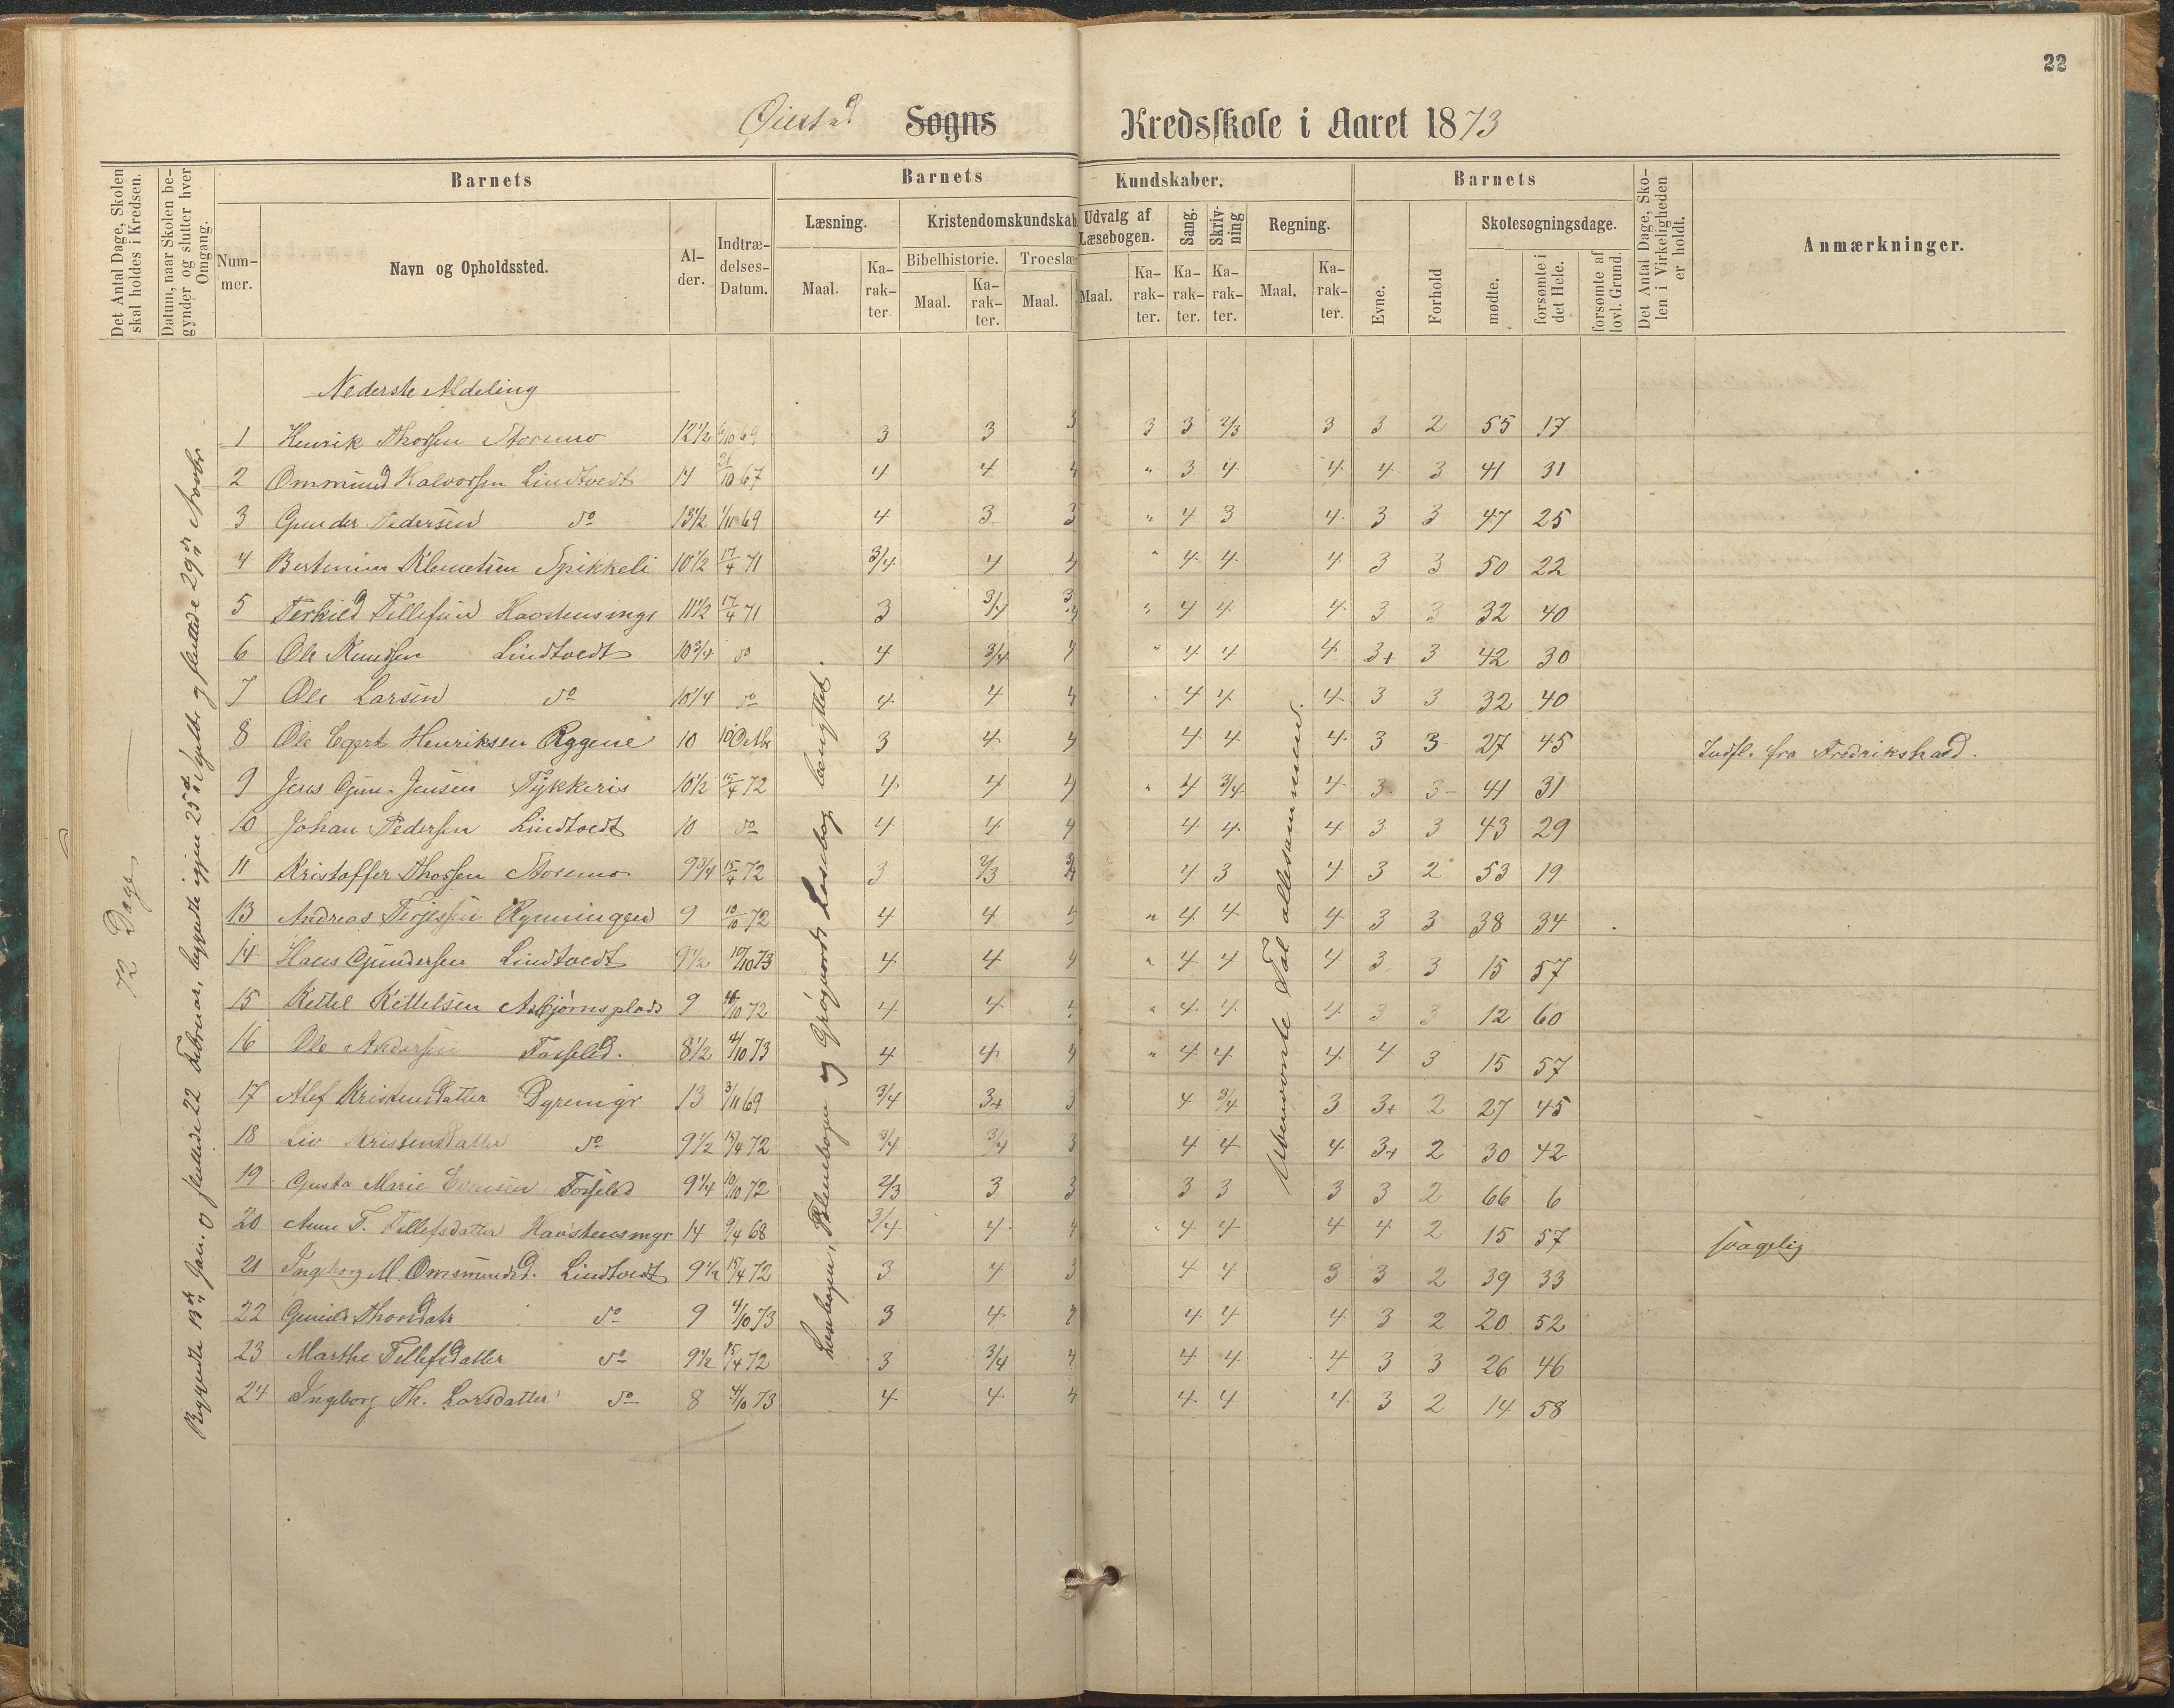 22
Øiestad Sogns Kredsskole i Aaret 1873
Det Antal Dage, Skolen skal holdes i Kredsen.
Datum, naar Skolen begynder og slutter hver Omgang.
Barnets
Nummer.
Navn og Opholdssted.
Alder.
Indtrædelses-Datum.
Barnets Kundskaber.
Læsning.
Maal.
Karakter.
Kristendomskundskab
Bibelhistorie.
Maal.
Karakter.
Troeslæ
Maal.
Udvalg af Læsebogen.
Maal.
Karakter.
Sang.
Karakter.
Skrivning
Karakter.
Regning.
Maal.
Karakter.
Barnets
Evne.
Forhold
Skolesøgningsdage.
mødte.
forsømte i det Hele.
forsømte af lovl. Grund.
Det Antal Dage, Skolen i Virkeligheden er holdt.
Anmærkninger.
72 Dage
Begyndte 13de Jan. o sluttede 22 Februar, begyndte igjen 25de og sluttede 29de Novbr
Læsebogen og Læsebog benyttet.
Ubenævnte Tal allesammen.
Nederste Afdeling
1 Henrik Thorsen Storemo 12½ 69 3 3 3 3 3 2/3 3 3 2 55 17
2 Ommund Halvorsen Lindtvedt 14 21/10 67 4 4 4 " 3 4 4 4 3 41 31
3 Gunder Pedersen do 13½ 1/11 69 4 3 3 " 4 3 4 3 3 47 25
4 Klemetsen Spikkeli 10½ 17/4 71 3/4 4 4 " 4 4 4 3 3 50 22
5 Terkild Tellefsen 11½ 17/4 71 3 3/4 3/4 " 4 4 4 3 3 32 40
6 Ole Knudsen Lindtvedt 10¾ do 4 3/4 4 " 4 4 4 3+ 3 42 30
7 Ole Larsen do 10¼ do 4 4 4 " 4 4 4 3 3 32 40
8 Ole Egert Henriksen Rggene 10 10 Octbr 3 4 4 4 4 4 3 3 27 45 Indfl. fra Fredrikshald.
9 Jens Gun. Jensen Tykkeris 10½ 15/4 72 4 4 4 " 4 3/4 4 3 3 41 31
10 Johan Pedersen Lindtvedt 10 do 4 4 4 4 4 4 3 3 43 29
11 Kristoffer Thorsen Storemo 9¾ 15/4 72 3 2/3 3/4 4 3 4 3 2 53 19
13 Andreas Terjesen Rynningen 9 10/10 72 4 4 4 " 4 4 4 3 3 38 34
14 Hans Gundersen Lindtvedt 9½ 10/10 73 4 4 4 " 4 4 4 3 3 15 57
15 Kettel Kettelsen Asbjørnsplads 9 /10 72 4 4 4 " 4 4 4 3 3 12 60
16 Ole Andersen 8½ 4/10 73 4 4 4 " 4 4 4 4 3 15 57
17 Alef Kristensdatter Dyremyr 13 3/11 69 3/4 3+ 3 4 3/4 3 3+ 2 27 45
18 Liv Kristensdatter do 9½ 15/4 72 3/4 3/4 3 4 4 4 3+ 2 30 42
19 Gusta Marie Evensen 9¼ 10/10 72 2/3 3 3 3 3 3 3 2 66 6
20 Anne T. Tellefsdatter 14 9/4 68 3/4 4 4 4 4 4 4 2 15 57 svagelig
21 Ingeborg M. Ommundsd. Lindtvedt 9½ 15/4 72 3 4 3 4 4 3 3 2 39 33
22 Gunild Thorsdatr do 9 4/10 73 3 4 4 4 4 4 3 2 20 52
23 Marthe Tellefsdatter do 9½ 15/4 72 3 3/4 4 4 4 4 3 3 26 46
24 Ingeborg Th. Larsdatter do 8 4/10 73 4 4 4 4 4 4 3 2 14 58